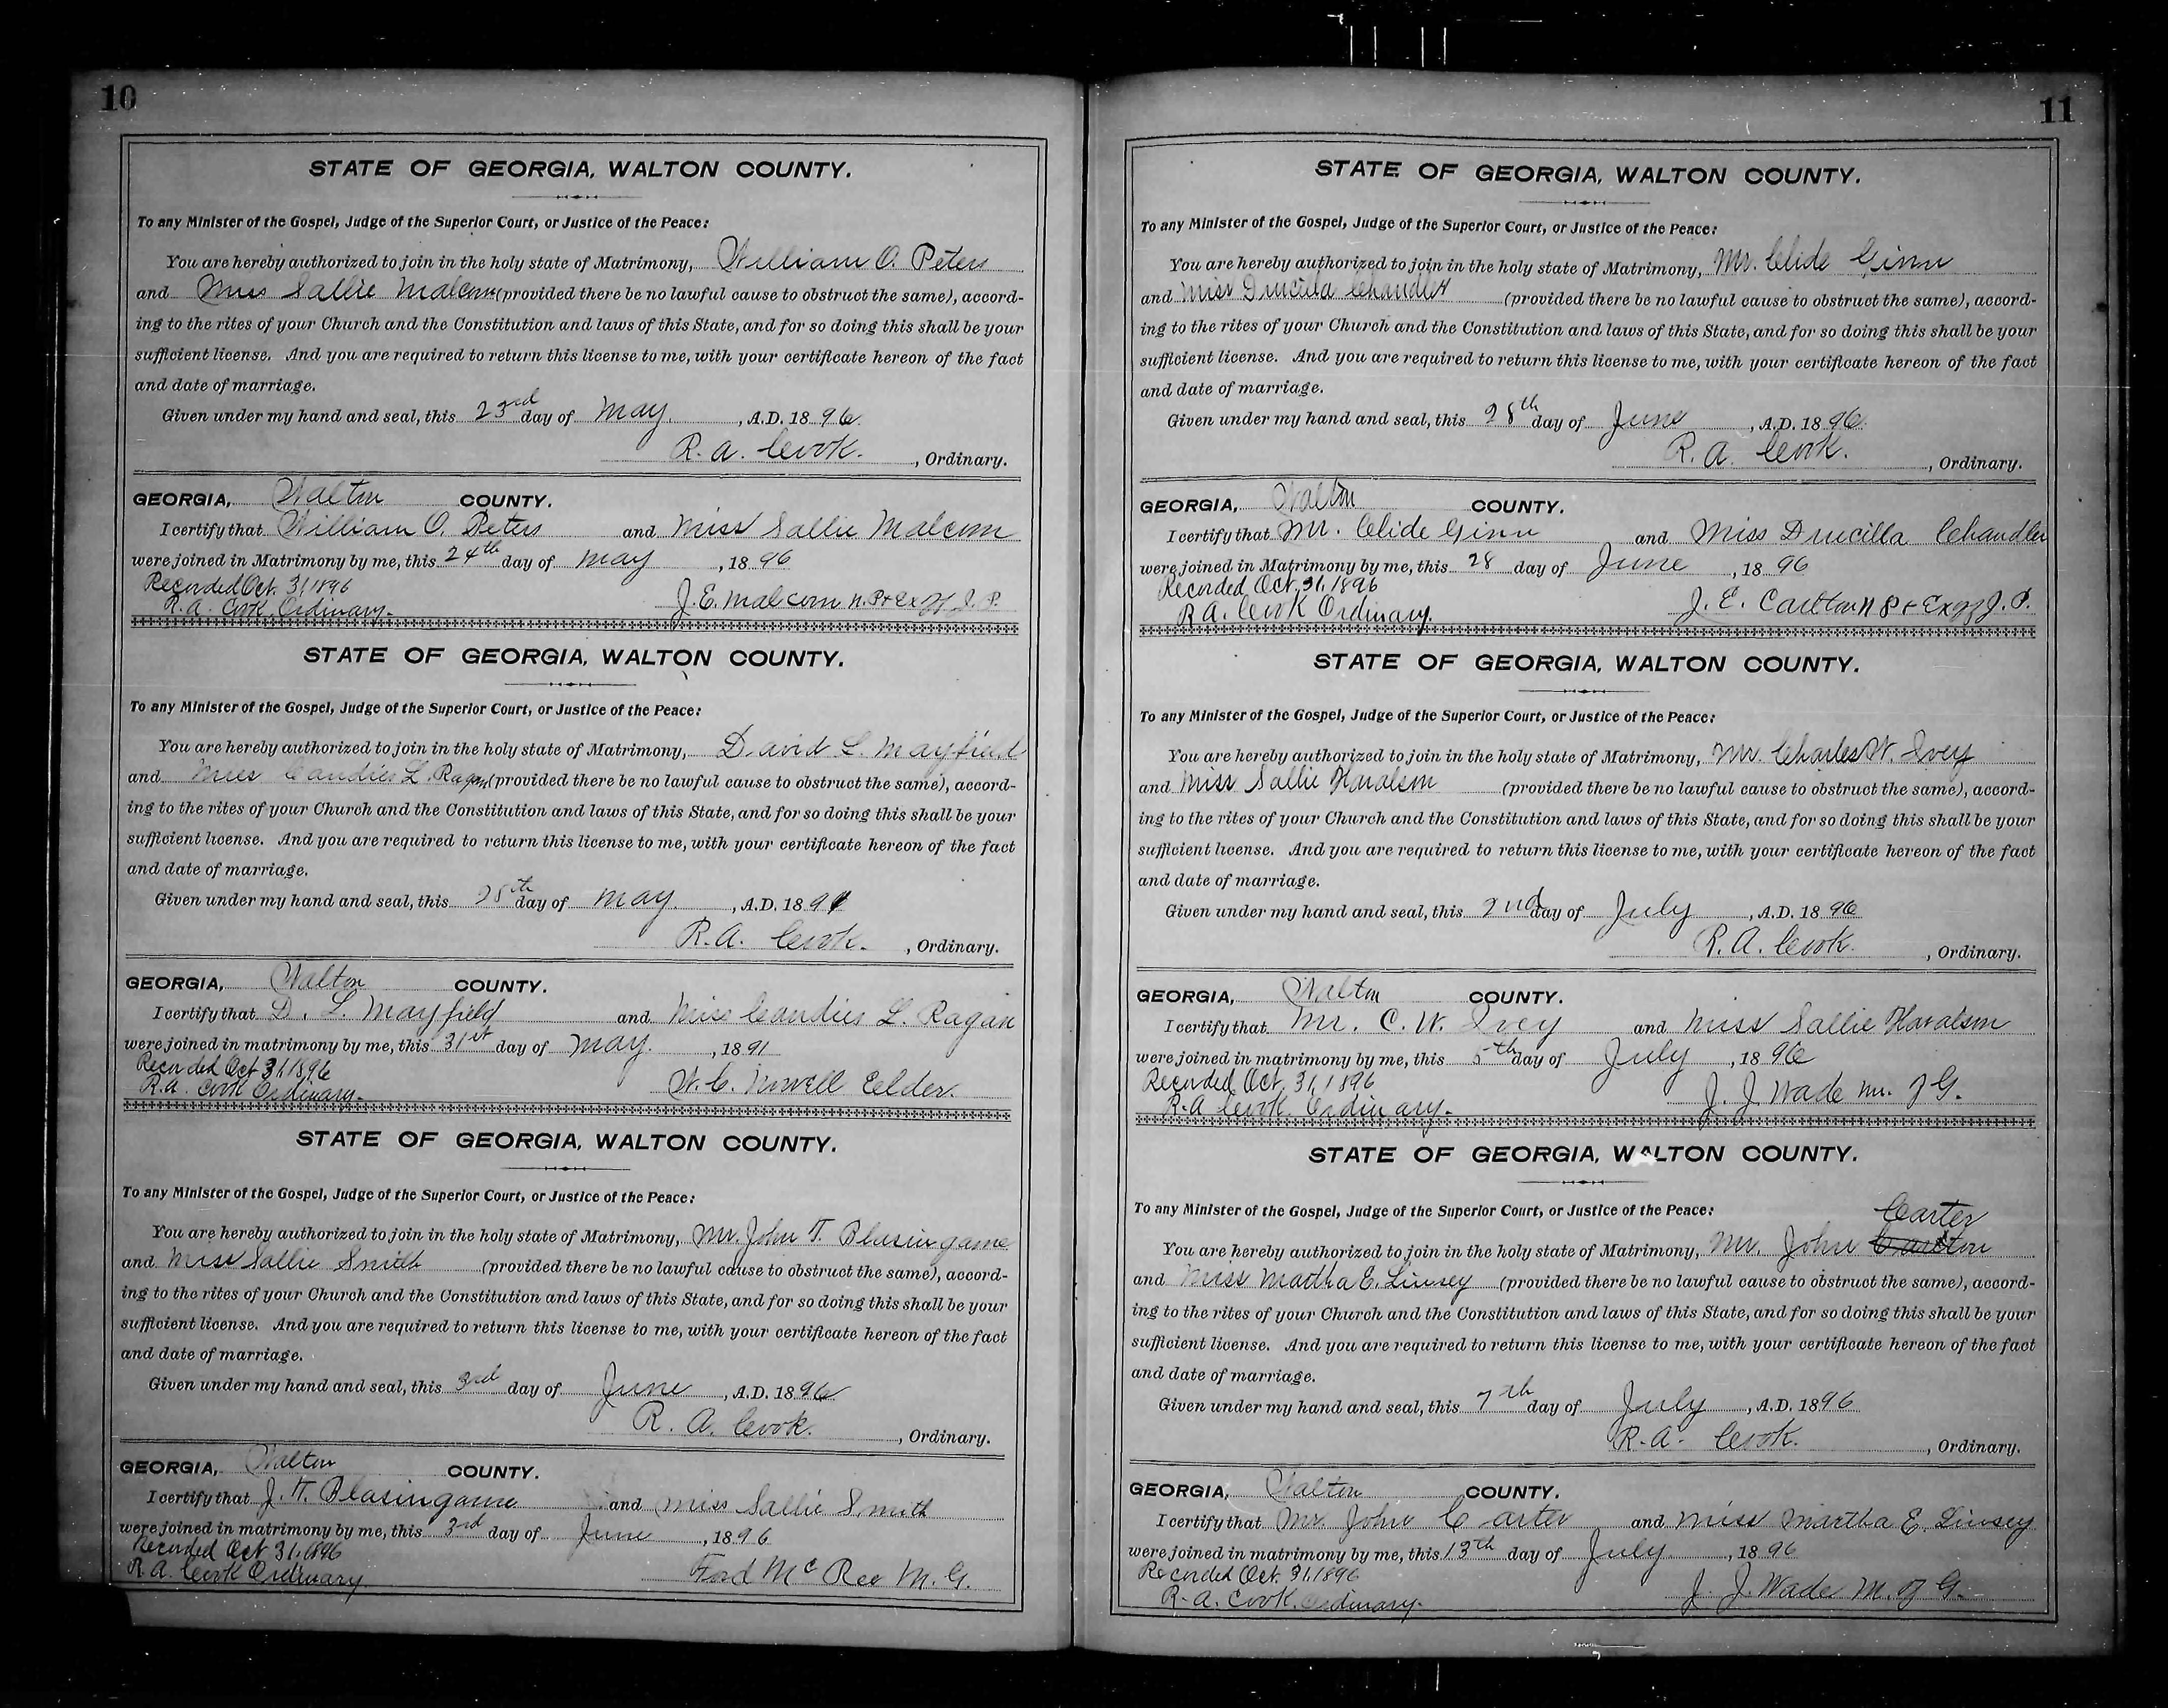 10
STATE OF GEORGIA, WALTON COUNTY.
To any Minister of the Gospel, Judge of the Superior Court, or Justice of the Peace:
You are hereby authorized to join in the holy state of Matrimony, William O. Peters
and Miss Sallie Malcom (provided there be no lawful cause to obstruct the same), accord-
ing to the rites of your Church and the Constitution and laws of this State, and for so doing this shall be your
sufficient license. And you are required to return this license to me, with your certificate hereon of the fact
and date of marriage.
Given under my hand and seal, this 23rd day of May, A.D. 1896
R. A. Cook. , Ordinary.
GEORGIA, Walton COUNTY.
I certify that William O. Peters and Miss Sallie Malcom
were joined in Matrimony by me, this 24th day of May , 1896
Recorded Oct. 31 1896
R. A. Cook, Ordinary. J. E. Malcom N. P. + Ex Of J. P.
STATE OF GEORGIA, WALTON COUNTY.
To any Minister of the Gospel, Judge of the Superior Court, or Justice of the Peace:
You are hereby authorized to join in the holy state of Matrimony, David L. Mayfield
and Miss Candies L. Ragan (provided there be no lawful cause to obstruct the same), accord-
ing to the rites of your Church and the Constitution and laws of this State, and for so doing this shall be your
sufficient license. And you are required to return this license to me, with your certificate hereon of the fact
and date of marriage.
Given under my hand and seal, this 28th day of May. , A.D. 1891
R. A. Cook. , Ordinary.
GEORGIA, Walton COUNTY.
I certify that D. L. Mayfield and Miss Candies L. Ragan
were joined in matrimony by me, this 31st day of May. , 1891
Recorded Oct 31, 1896
R. A. Cook Ordinary. W. C. Nowell Eelder.
STATE OF GEORGIA, WALTON COUNTY.
To any Minister of the Gospel, Judge of the Superior Court, or Justice of the Peace:
You are hereby authorized to join in the holy state of Matrimony, Mr. John T. Blasingame
and Miss Sallie Smith (provided there be no lawful cause to obstruct the same), accord-
ing to the rites of your Church and the Constitution and laws of this State, and for so doing this shall be your
sufficient license. And you are required to return this license to me, with your certificate hereon of the fact
and date of marriage.
Given under my hand and seal, this 3rd day of June , A.D. 1896
R. A. Cook. , Ordinary.
GEORGIA, Walton COUNTY.
I certify that J. T. Blasingame and Miss Sallie Smith
were joined in matrimony by me, this 3rd day of June , 1896
Recorded Oct 31, 1896
R. A. Cook Ordinary Ford McRee M. G.
11
STATE OF GEORGIA, WALTON COUNTY.
To any Minister of the Gospel, Judge of the Superior Court, or Justice of the Peace:
You are hereby authorized to join in the holy state of Matrimony, Mr. Clide Ginn
and Miss Drucilla Chandler (provided there be no lawful cause to obstruct the same), accord-
ing to the rites of your Church and the Constitution and laws of this State, and for so doing this shall be your
sufficient license. And you are required to return this license to me, with your certificate hereon of the fact
and date of marriage.
Given under my hand and seal, this 28th day of June , A.D. 1896
R. A. Cook. , Ordinary.
GEORGIA, Walton COUNTY.
I certify that Mr. Clide Ginn and Miss Drucilla Chandler
were joined in Matrimony by me, this 28 day of June , 1896
Recorded Oct. 31, 1896
R A. Cook Ordinary. J. E. Carlton N P + Ex Of J. P.
STATE OF GEORGIA, WALTON COUNTY.
To any Minister of the Gospel, Judge of the Superior Court, or Justice of the Peace:
You are hereby authorized to join in the holy state of Matrimony, Mr. Charles W. Ivey
and Miss Sallie Haralson (provided there be no lawful cause to obstruct the same), accord-
ing to the rites of your Church and the Constitution and laws of this State, and for so doing this shall be your
sufficient license. And you are required to return this license to me, with your certificate hereon of the fact
and date of marriage.
Given under my hand and seal, this 2nd day of July , A.D. 1896
R. A. Cook. , Ordinary.
GEORGIA, Walton COUNTY.
I certify that Mr. C. W. Ivey and Miss Sallie Haralson
were joined in matrimony by me, this 5th day of July , 1896
Recorded Oct. 31, 1896
R. A Cook. Ordinary. J. J. Wade M. of G.
STATE OF GEORGIA, WALTON COUNTY.
To any Minister of the Gospel, Judge of the Superior Court, or Justice of the Peace:
Carter
You are hereby authorized to join in the holy state of Matrimony, Mr. John Carlton
and Miss Martha E. Linsey (provided there be no lawful cause to obstruct the same), accord-
ing to the rites of your Church and the Constitution and laws of this State, and for so doing this shall be your
sufficient license. And you are required to return this license to me, with your certificate hereon of the fact
and date of marriage.
Given under my hand and seal, this 7th day of July , A.D. 1896
R. A. Cook. , Ordinary.
GEORGIA, Walton COUNTY.
I certify that Mr. John Carter and Miss Martha E. Linsey
were joined in matrimony by me, this 13th day of July , 1896
Recorded Oct. 31, 1896
R. A. Cook. Ordinary. J. J. Wade M. of G.